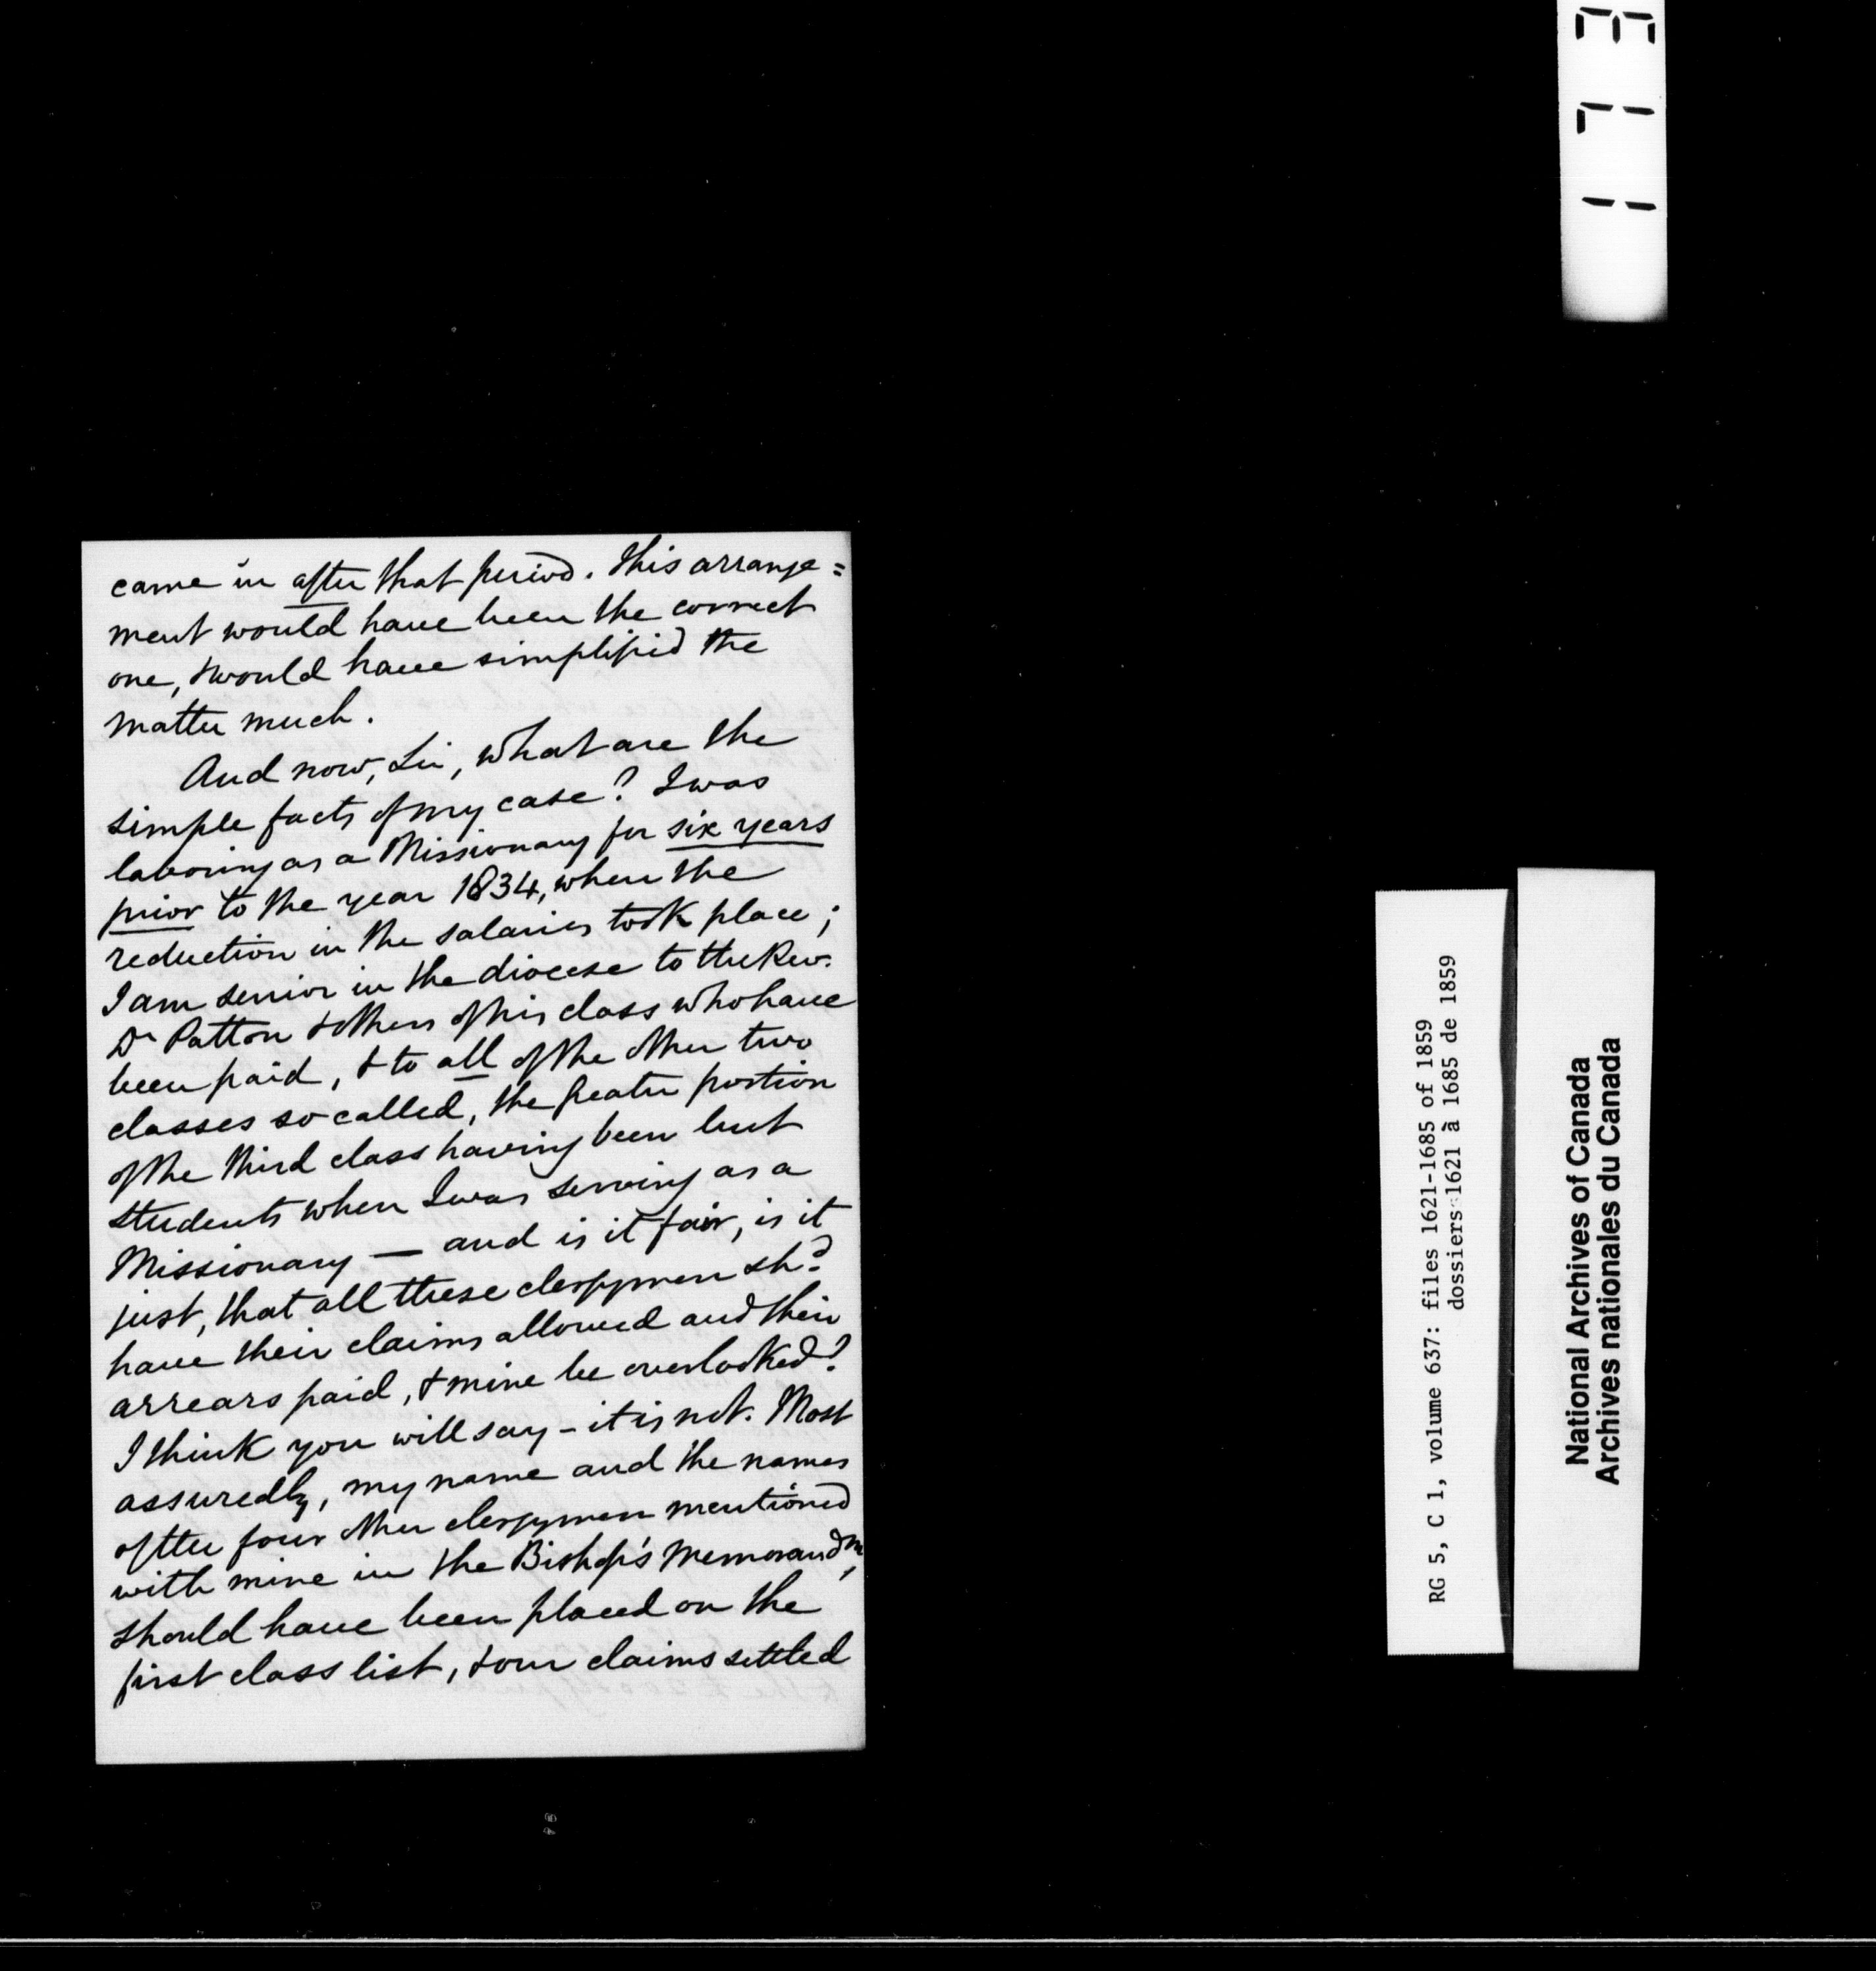 came in after that period. This arrange=
ment would have been the correct
one, & would have simplified the
matter much.
And now, Sir, what are the
simple facts of my case? I was
laboring as a Missionary for six years
prior to the year 1834, when the
reduction in the salaries took place;
I am senior in the diocese to the Rev.
Dr Patton & others of his class who have
been paid, & to all of the other two
classes so called, the greater portion
of the third class having been but
students when I was serving as a
Missionary — and is it fair, is it
just, that all these clergymen shd.
have their claims allowed and their
arrears paid, & mine be overlooked?
I think you will say - it is not. Most
assuredly, my name and the names
of the four other clergymen mentioned
with mine in the Bishop's Memorandm,
should have been placed on the
first class list, & our claims settled
RG 5, C 1, volume 637: files 1621-1685 of 1859
dossiers 1621 à 1685 de 1859
National Archives of Canada
Archives nationales du Canada